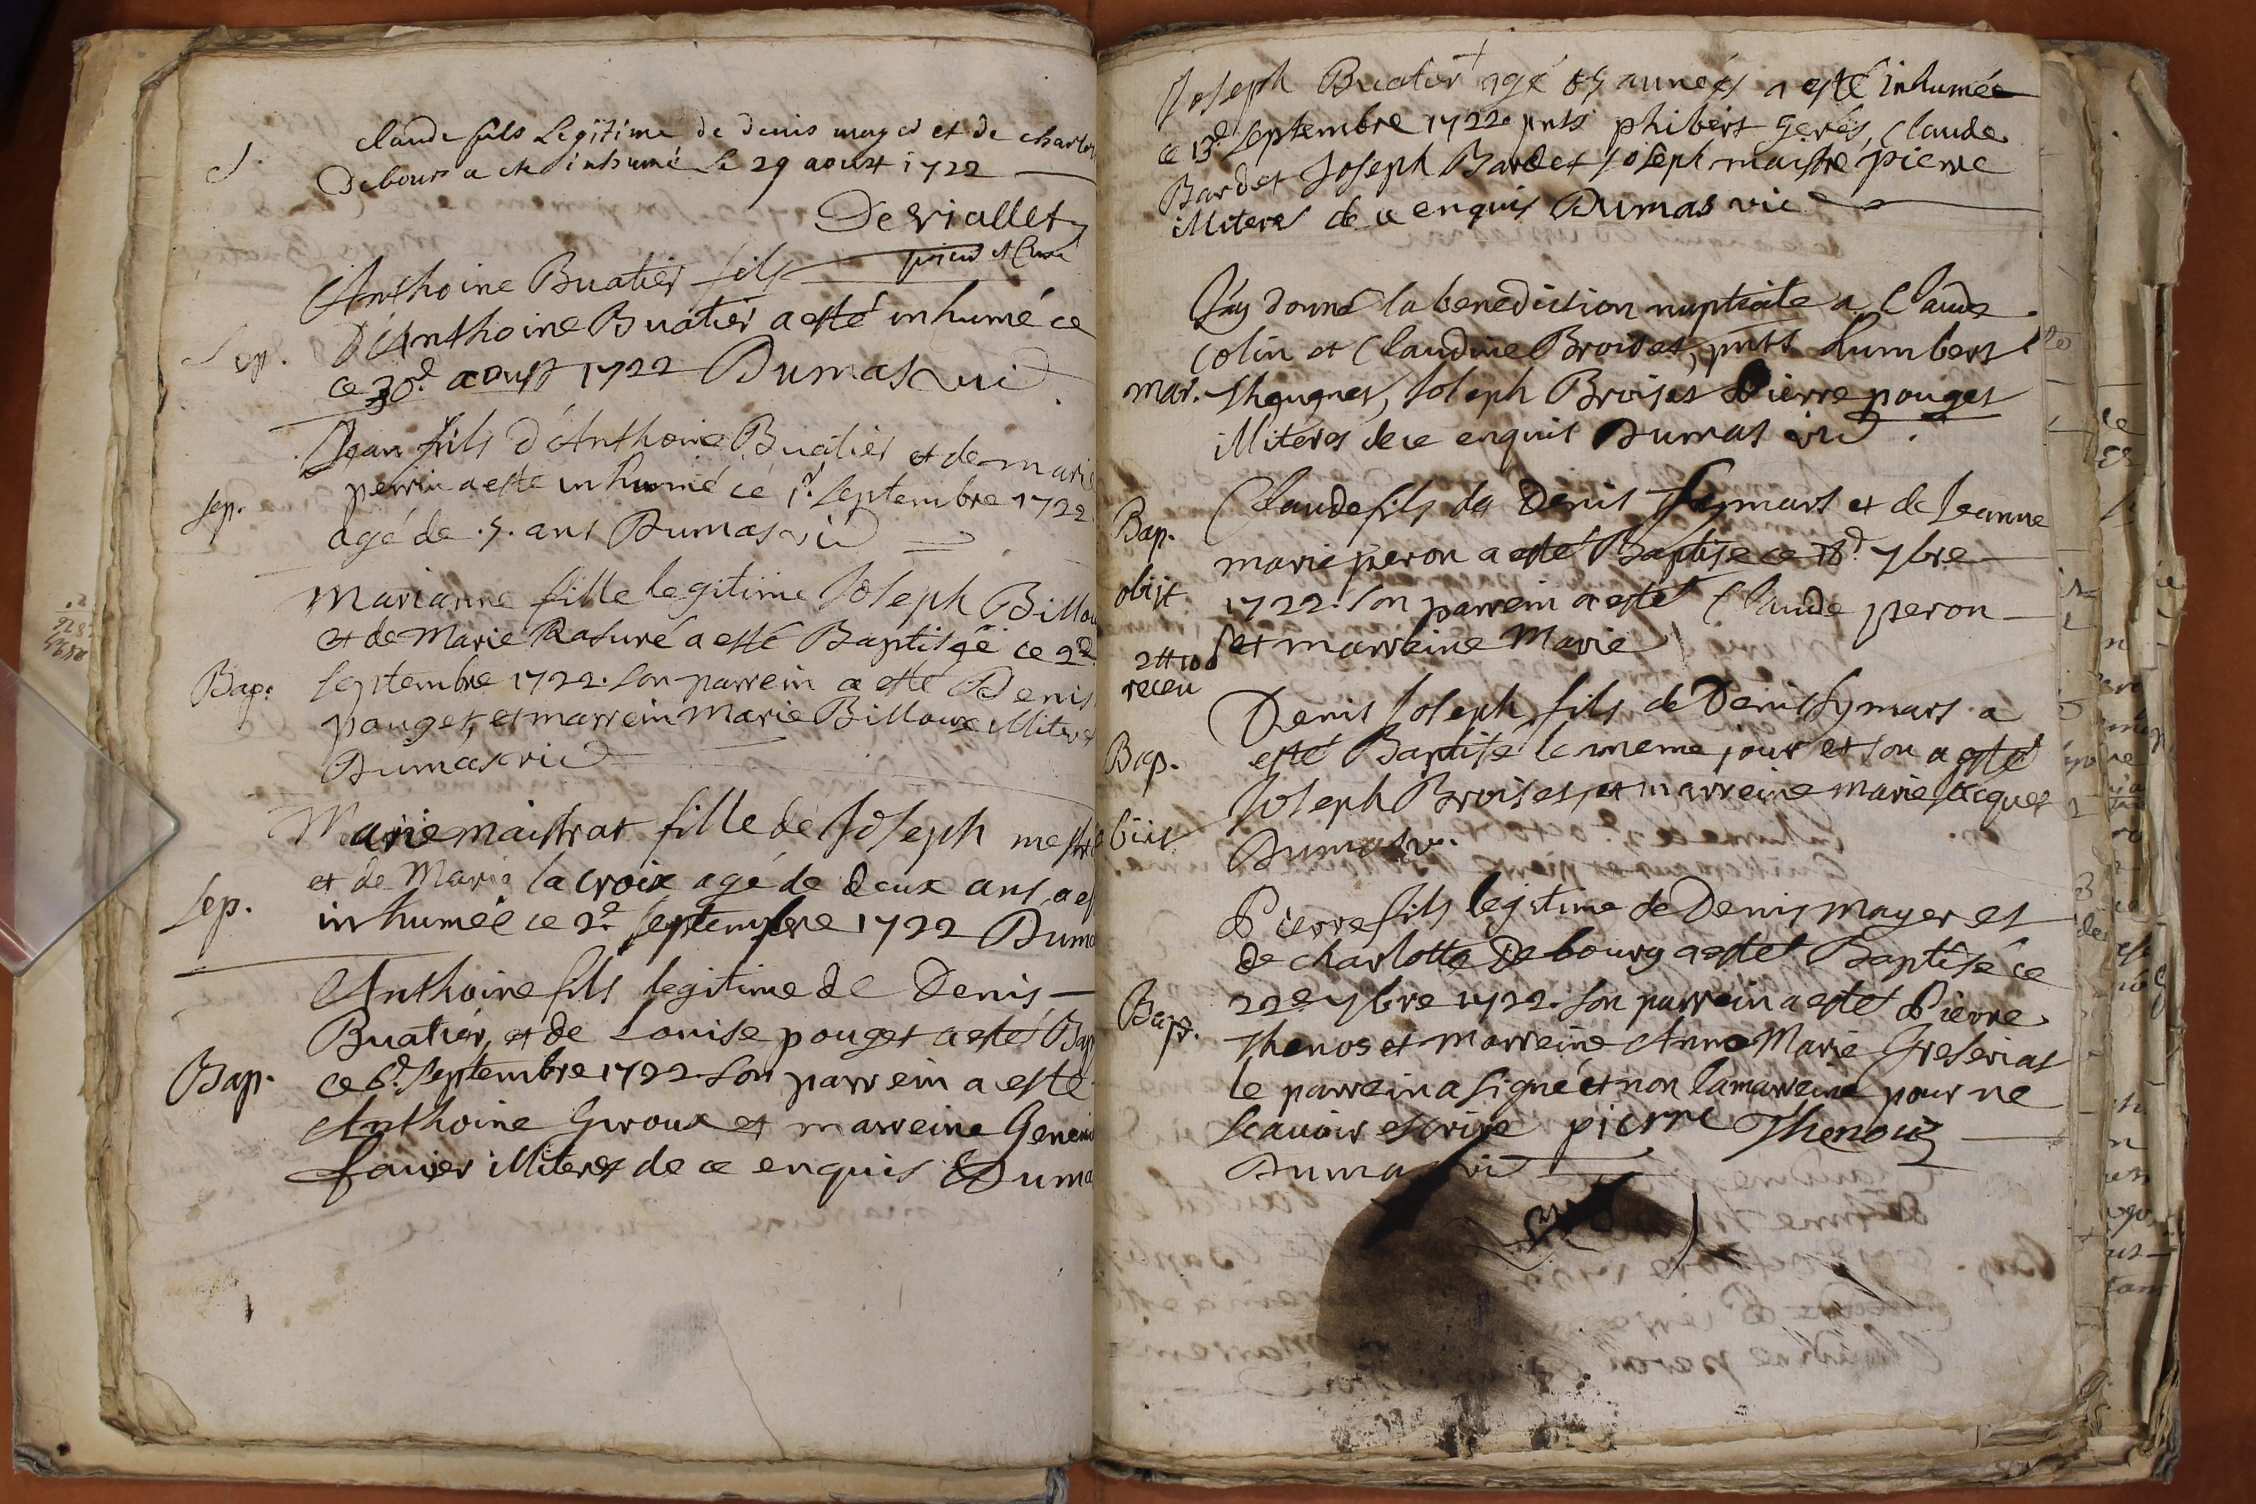 S.
Claude fils Legitime de denis mayer et de charlot
Debourg a este inhumé le 29 aoust 1722
Deviallet
prieur et Curé
Sep.
Anthoine Buatier fils
D'Anthoine Buatier a esté inhumé ce
ce 30e. aoust 1722 Dumas vic
Sep.
Jean fils d'Anthoine Buatier et de marie
perrin a esté inhumé ce 1r. Septembre 1722
agé de .5. ans Dumas vic
Bap.
Marianne fille legitime Joseph Billou
et de Marie Rasuré a esté Baptisée ce 2d.
Septembre 1722. Son parrein a esté Denis
pouget, et marrein Marie Billoux illiteres
Dumas vic
Sep.
Marie maistrat fille de Joseph mestr
et de Marie la croix agé de deux ans, a es
inhumée ce 2e. Septembre 1722 Duma
Bap.
Anthoine fils legitime de Denis
Buatier, et de Louise pouget a esté Bap
ce 6e. Septembre 1722. Son parrein a esté
Anthoine Giroux et marreine Genevi
favier illiteres de ce enquis Duma
Joseph Buatier agé 85 années a esté inhumée
ce 13e Septembre 1722. pnts phibert Gerés, Claude
Bardet Joseph Bardet Joseph maistre pierre
illiteres de ce enquis Dumas vic
mar.
J'ay donné la benediction nuptiale a Claude
Colin et Claudine Broises, pnts humbert
Joseph Broises Pierre pouget
illiteres de ce enquis Dumas vic
Bap.
obijt
2tt 10d
receu
Claude fils de Denis Symars et de Jeanne
marie peron a esté Baptisé ce 18e. 7bre
1722. Son parrein a esté Claude peron
et marreine Marie
Bap.
Denis Joseph fils de Denis Symars a
esté Baptisé le meme jour et son a esté
Joseph Broises, et marreine marie Jacquet
Dumas v.
Bap.
Pierre fils legitime de Denis Mayer et
de charlotte Debourg a esté Baptisé ce
22e 7bre 1722. Son parrein a esté Pierre
Thenos et marreine Anne Marie
le parrein a signé et non la marreine pour ne
Scavoir escrire pierre Thenoud
Dumas vic